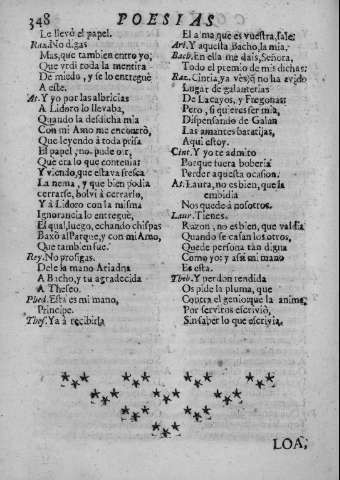 348 POESIAS
Le llevò el papel.
Rax. No digas
Mas, que tambien entro yo;
Que vrdi toda la mentira
De miedo, y se lo entreguè
A este.
At. Y yo por las albricias
A Lidoro lo llevaba,
Quando la desdicha mia
Con mi Amo me encontrò,
Que leyendo à toda prisa
El papel, no pude oìr,
Que era lo que contenia:
Y viendo, que estava fresca
La nema, y que bien podia
cerrarse, bolvì à cerrarlo,
Y à Lidoro con la misma
Ignorancia lo entreguè,
El qual, luego, echando chispas
Baxò al Parque, y con mi Amo,
Que tambien fue.
Rey. No prosigas.
Dele la mano Ariadna
A Bacho, y tu agradecida
A Theseo.
Phed. Esta es mi mano,
Principe.
Thes. Ya à recibirla
El alma, que es vuestra, sale.
Ari. Y aquesta, Bacho, la mia.
Bach. En ella me dais, Señora,
Todo el premio de mis dichas.
Rac. Cintia, ya vès, que no ha avido
Lugar de galanterias
De Lacayos, y Fregonas:
Pero, si quieres ser mia,
Dispensando de Galan
Las amantes baratijas,
Aqui estoy.
Cint. Y yo te admito
Porque fuera boberia
Perder aquesta ocasion.
At. Laura, no es bien, que la
embidia
Nos quede à nosotros.
Laur. Tienes
Razon, no es bien, que valdia
Quando se casan los otros,
Quede persona tan digna
Como yo: y assi mi mano
Es esta.
Theb. Y perdon rendida
Os pide la pluma, que
Contra el genio, que la anima,
Por serviros escriviò,
Sin saber lo que escrivia.
LOA,